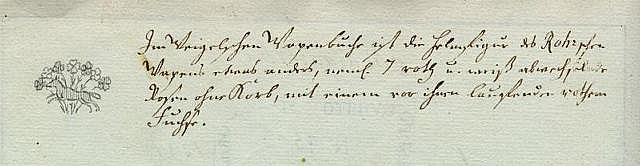 Im Weigelschen Wapenbuche ist die Helmfigur des Rohrschen
Wapens etwas anders, neml. 7 roth u. weiß abwechselnde
Rosen ohne Korb, mit einem vor ihnen lauffenden rothem
Fuchse.